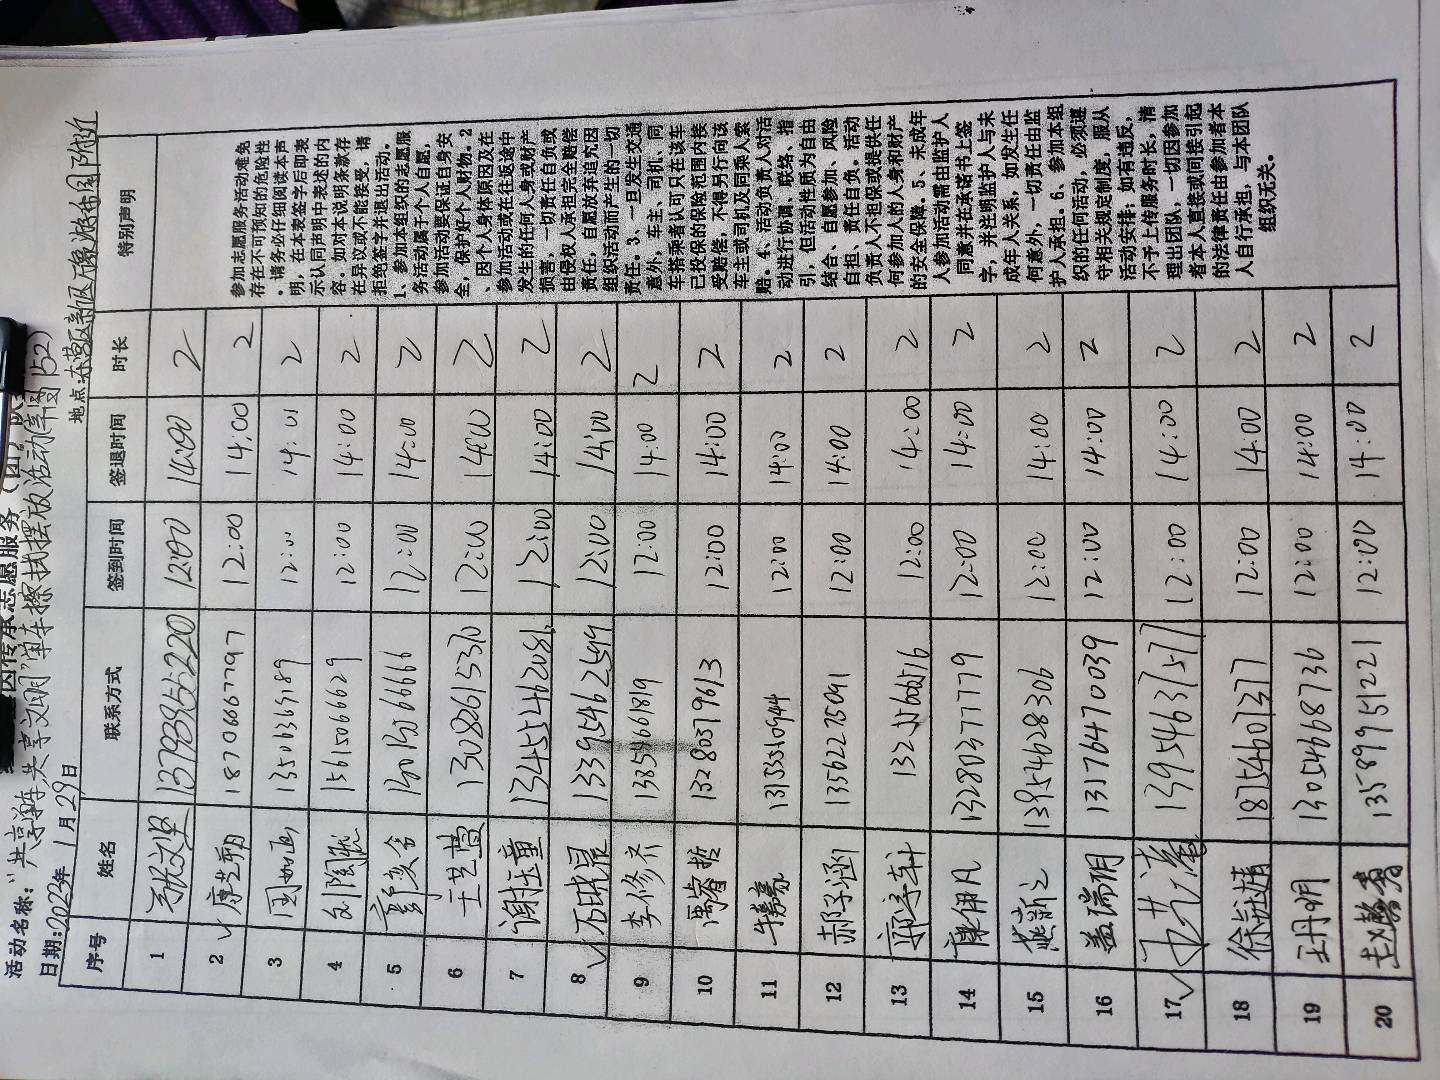 因传承志愿服务（团）队
活动名称：“共享 共享文明”单车擦拭摆放活动
日期：2023年1月29日 地点：东营区新区 游园附近
序号 姓名 联系方式 签到时间 签退时间 时长 特别声明
1 13793855220 12:00 14:00 2
2 唐艺朔 18706667797 12:00 14:00 2
3 周如画 13506365189 12:00 14:00 2
4 15615066629 12:00 14:00 2
5 12:00 14:00 2
6 王艺萱 13082615370 12:00 14:00 2
7 谢玉童 12:00 14:00 2
8 石晓晨 13395462599 12:00 14:00 2
9 李修齐 13854661819 12:00 14:00 2
10 禹睿哲 13280379613 12:00 14:00 2
11 牛嘉豪 12:00 14:00 2
12 郝子涵 13562275091 12:00 14:00 2
13 12:00 14:00 2
14 康伊凡 13280377779 12:00 14:00 2
15 燕新之 13954628306 12:00 14:00 2
16 盖瑞玥 13176470039 12:00 14:00 2
17 13954637577 12:00 14:00 2
18 徐婧 18754601377 12:00 14:00 2
19 王丹明 13054668736 12:00 14:00 2
20 赵馨 13589951221 12:00 14:00 2
参加志愿服务活动难免
存在不可预知的危险性
，请务必仔细阅读本声
明，在本表签字后即表
示认同声明中表述的内
容。如对本说明条款存
在异议或不能接受，请
拒绝签字并退出活动。
1、参加本组织的志愿服
务活动属于个人自愿，
参加活动要保证自身安
全，保护好个人财物。2
、因个人身体原因及在
参加活动或在往返途中
发生的任何人身或财产
损害，一切责任自负或
由侵权人承担完全赔偿
责任，自愿放弃追究因
组织活动而产生的一切
责任。3、一旦发生交通
意外，车主、司机、同
车搭乘者认可只在该车
已投保的保险范围内接
受赔偿，不得另行向该
车主或司机及同乘人索
赔。4、活动负责人对活
动进行协调、联络、指
引，但活动性质为自由
结合、自愿参加、风险
自担、责任自负。活动
负责人不担保或提供任
何参加人的人身和财产
的安全保障。5、未成年
人参加活动需由监护人
同意并在承诺书上签
字，并注明监护人与未
成年人关系，如发生任
何意外，一切责任由监
护人承担。6、参加本组
织的任何活动，必须遵
守相关规定制度，服从
活动安排；如有违反，
不予上传服务时长，清
理出团队，一切因参加
者本人直接或间接引起
的法律责任由参加者本
人自行承担，与本团队
组织无关。